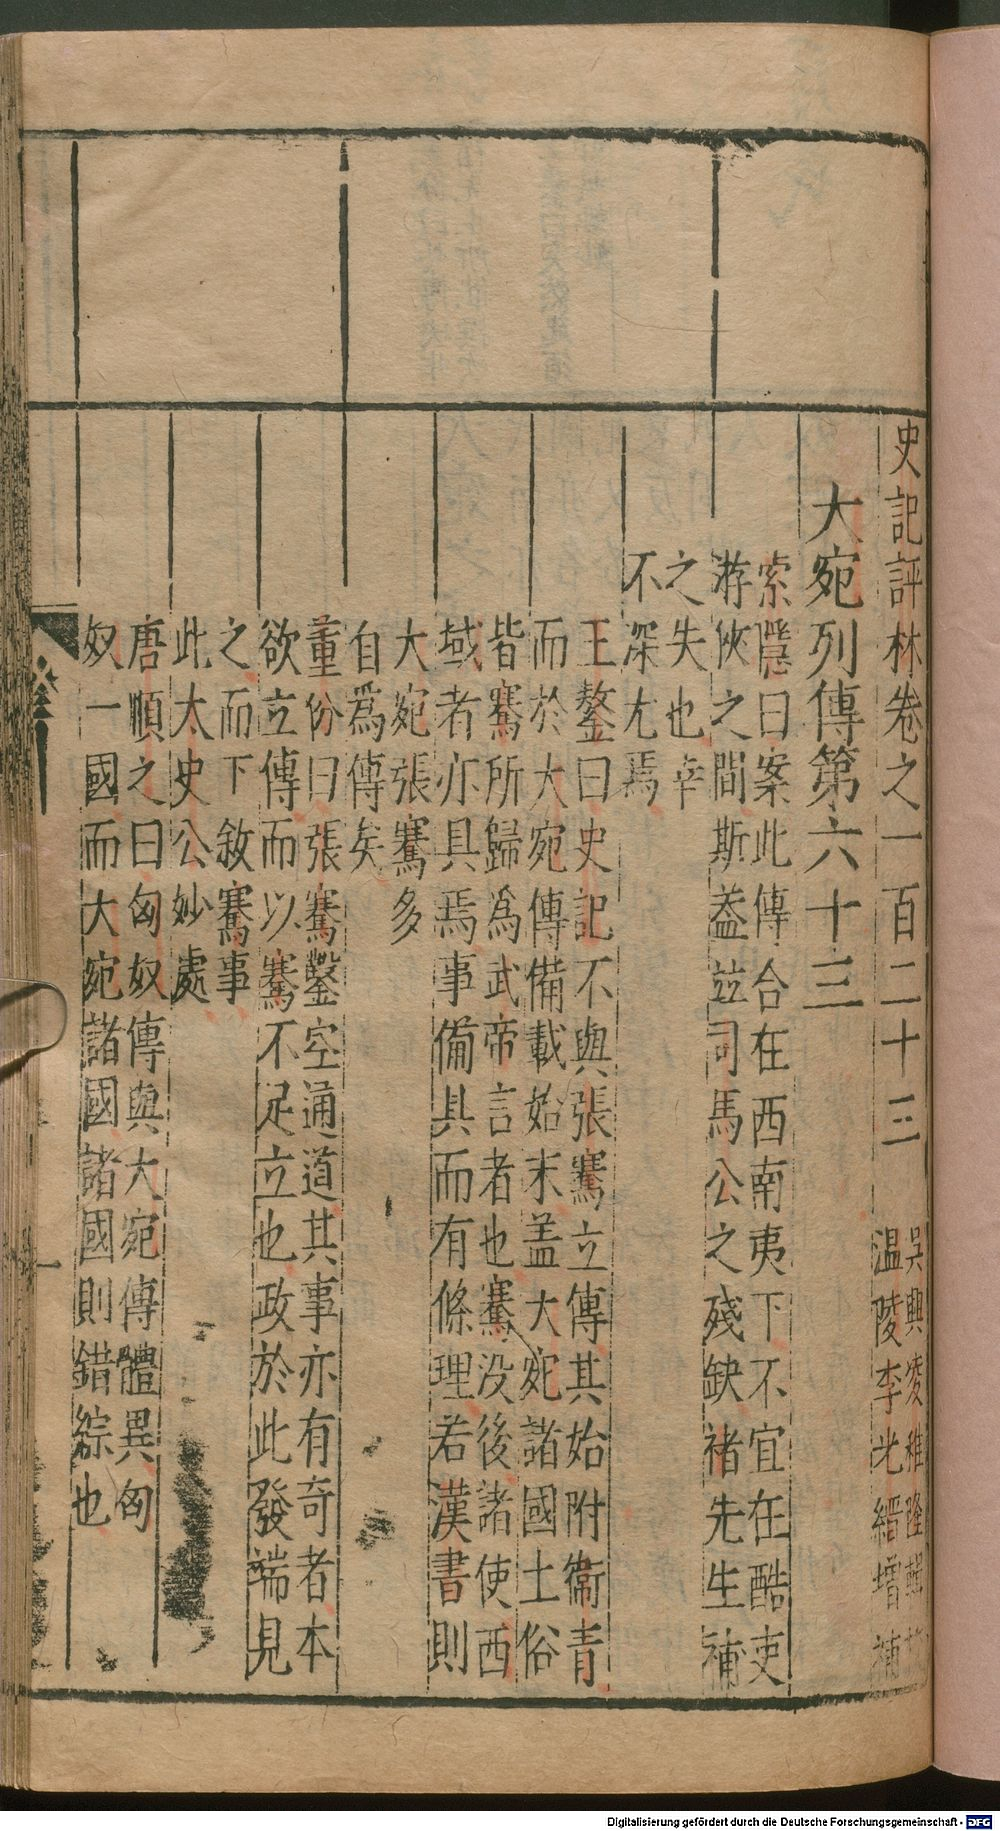 史記評林卷之一百二十三
吳興凌稚隆輯校
溫陵李光縉增補
大宛列傳第六十三
索隱曰案此傳合在西南夷下不宜在酷吏
游俠之間斯葢竝司馬公之殘缺褚先生補
之失也幸
不深尤焉
王鏊曰史記不與張騫立傳其始附衞青
而於大宛傳備載始末盖大宛諸國土俗
皆騫所歸爲武帝言者也騫没後諸使西
域者亦具焉事備具而有條理若漢書則
大宛張騫多
自爲傳矣
董份曰張騫鑿空通道其事亦有奇者本
欲立傳而以騫不足立也政於此發端見
之而下敘騫事
此太史公妙處
唐順之曰匈奴傳與大宛傳體異匈
奴一國而大宛諸國諸國則錯綜也
一
Digitalisierung gefördert durch die Deutsche Forschungsgemeinschaft - DFG